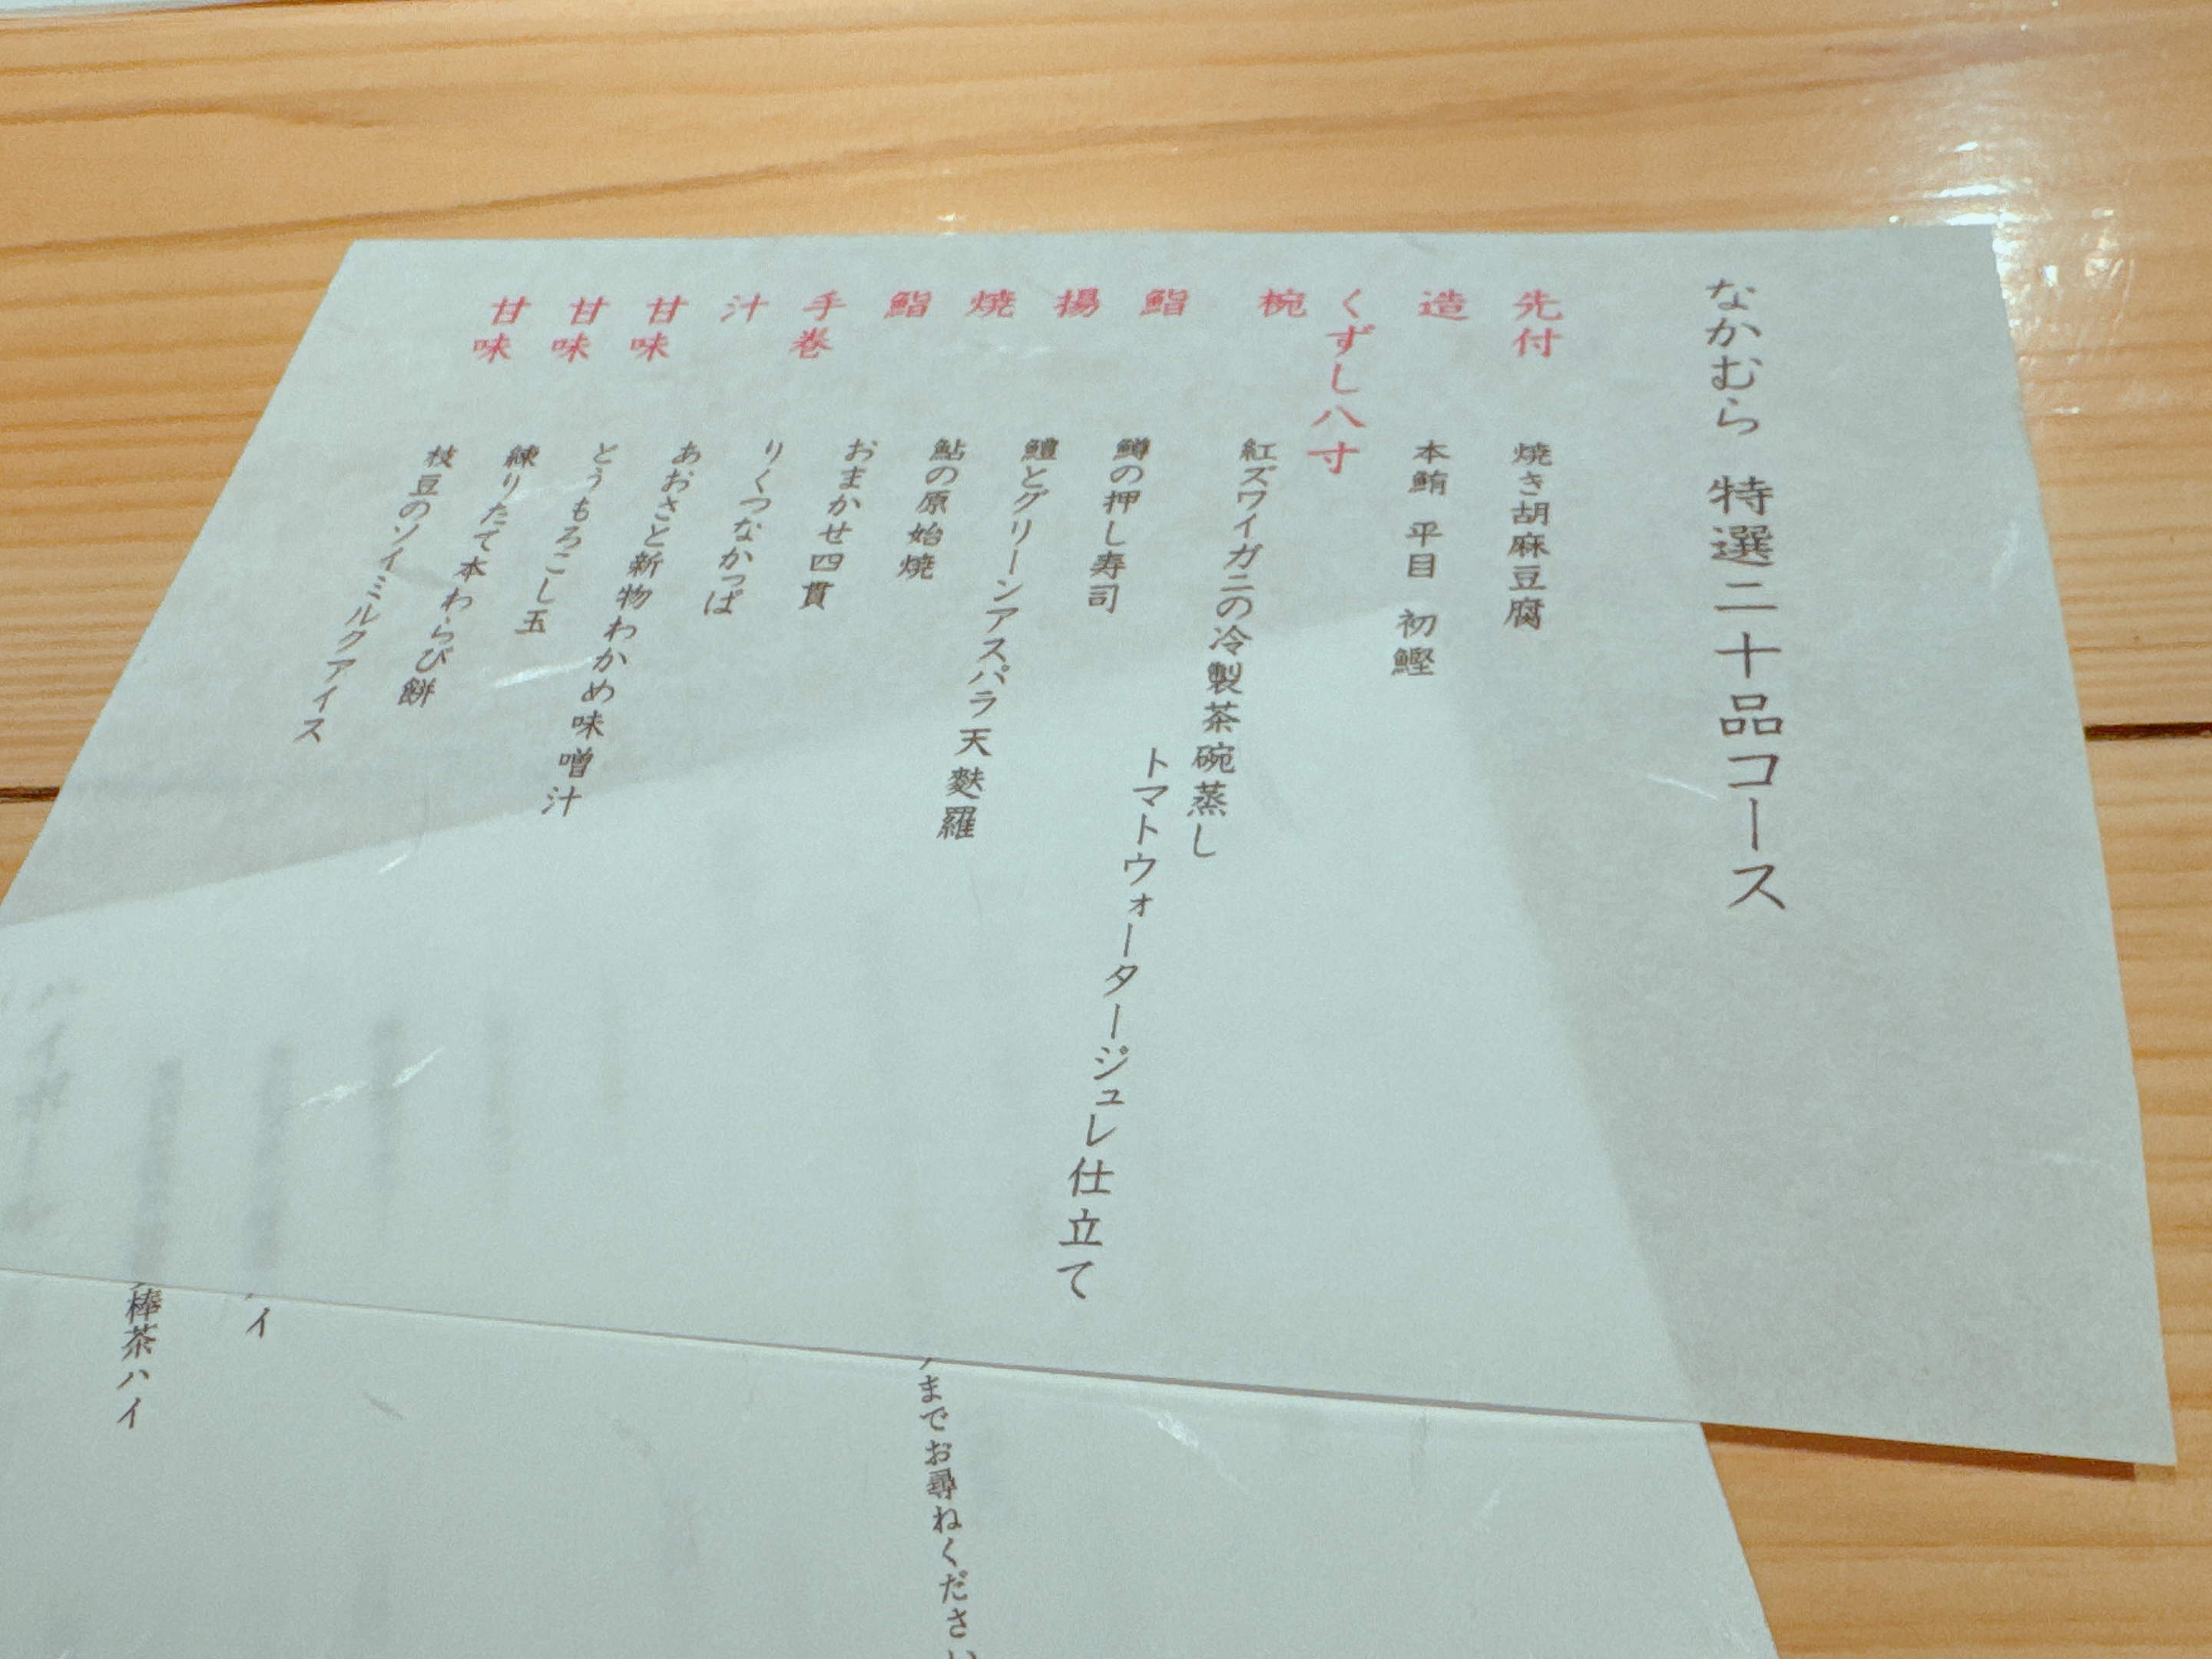 なかむら 特選二十品コース
先付 焼き胡麻豆腐
造 本鮪 平目 初鰹
くずし八寸
椀 紅ズワイガニの冷製茶碗蒸し
トマトウォータージュレ仕立て
鮨 鱒の押し寿司
揚 鱧とグリーンアスパラ天麩羅
焼 鮎の原始焼
鮨 おまかせ四貫
手巻 りくつなかっぱ
汁 あおさと新物わかめ味噌汁
甘味 とうもろこし玉
甘味 練りたて本わらび餅
甘味 枝豆のソイミルクアイス
までお尋ねください
イ
棒茶ハイ